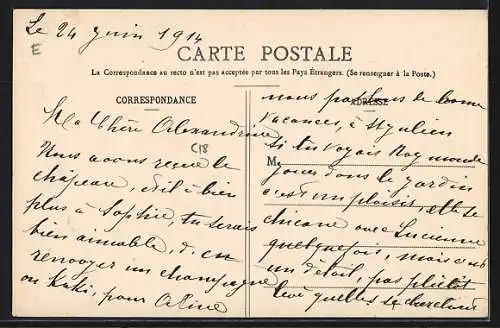 Le 24 juin 1914
E
CARTE POSTALE
La Correspondance au recto n'est pas acceptée par tous les Pays Étrangers. (Se renseigner à la Poste.)
CORRESPONDANCE
Ma Chère Alexandrine
C18
Nous avons reçue le
chapeau, et il à bien
plus à Sophie, tu serais
bien aimable, d'en
renvoyer un champagne
ou Kaki, pour Aline
ADRESSE
nous passons de bonne
vacances, à St Julien
Si tu voyais Raymonde
M
jouer dans le jardin
c'est un plaisir, elle se
chicane avec Lucienne
quelquefois, mais c'est
un détail, pas plutôt
qu'elles se